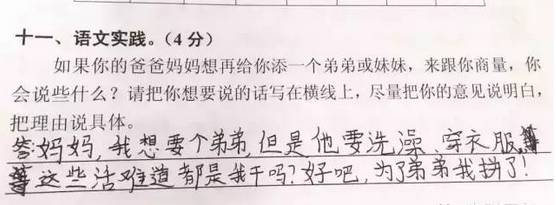 十一、语文实践。（4分）
如果你的爸爸妈妈想再给你添一个弟弟或妹妹，来跟你商量，你
会说些什么？请把你想要说的话写在横线上，尽量把你的意见说明白，
把理由说具体。
答妈妈，我想要个弟弟，但是他要洗澡、穿衣服，等
等这些活难道都是我干吗？好吧，为了弟弟我拼了！